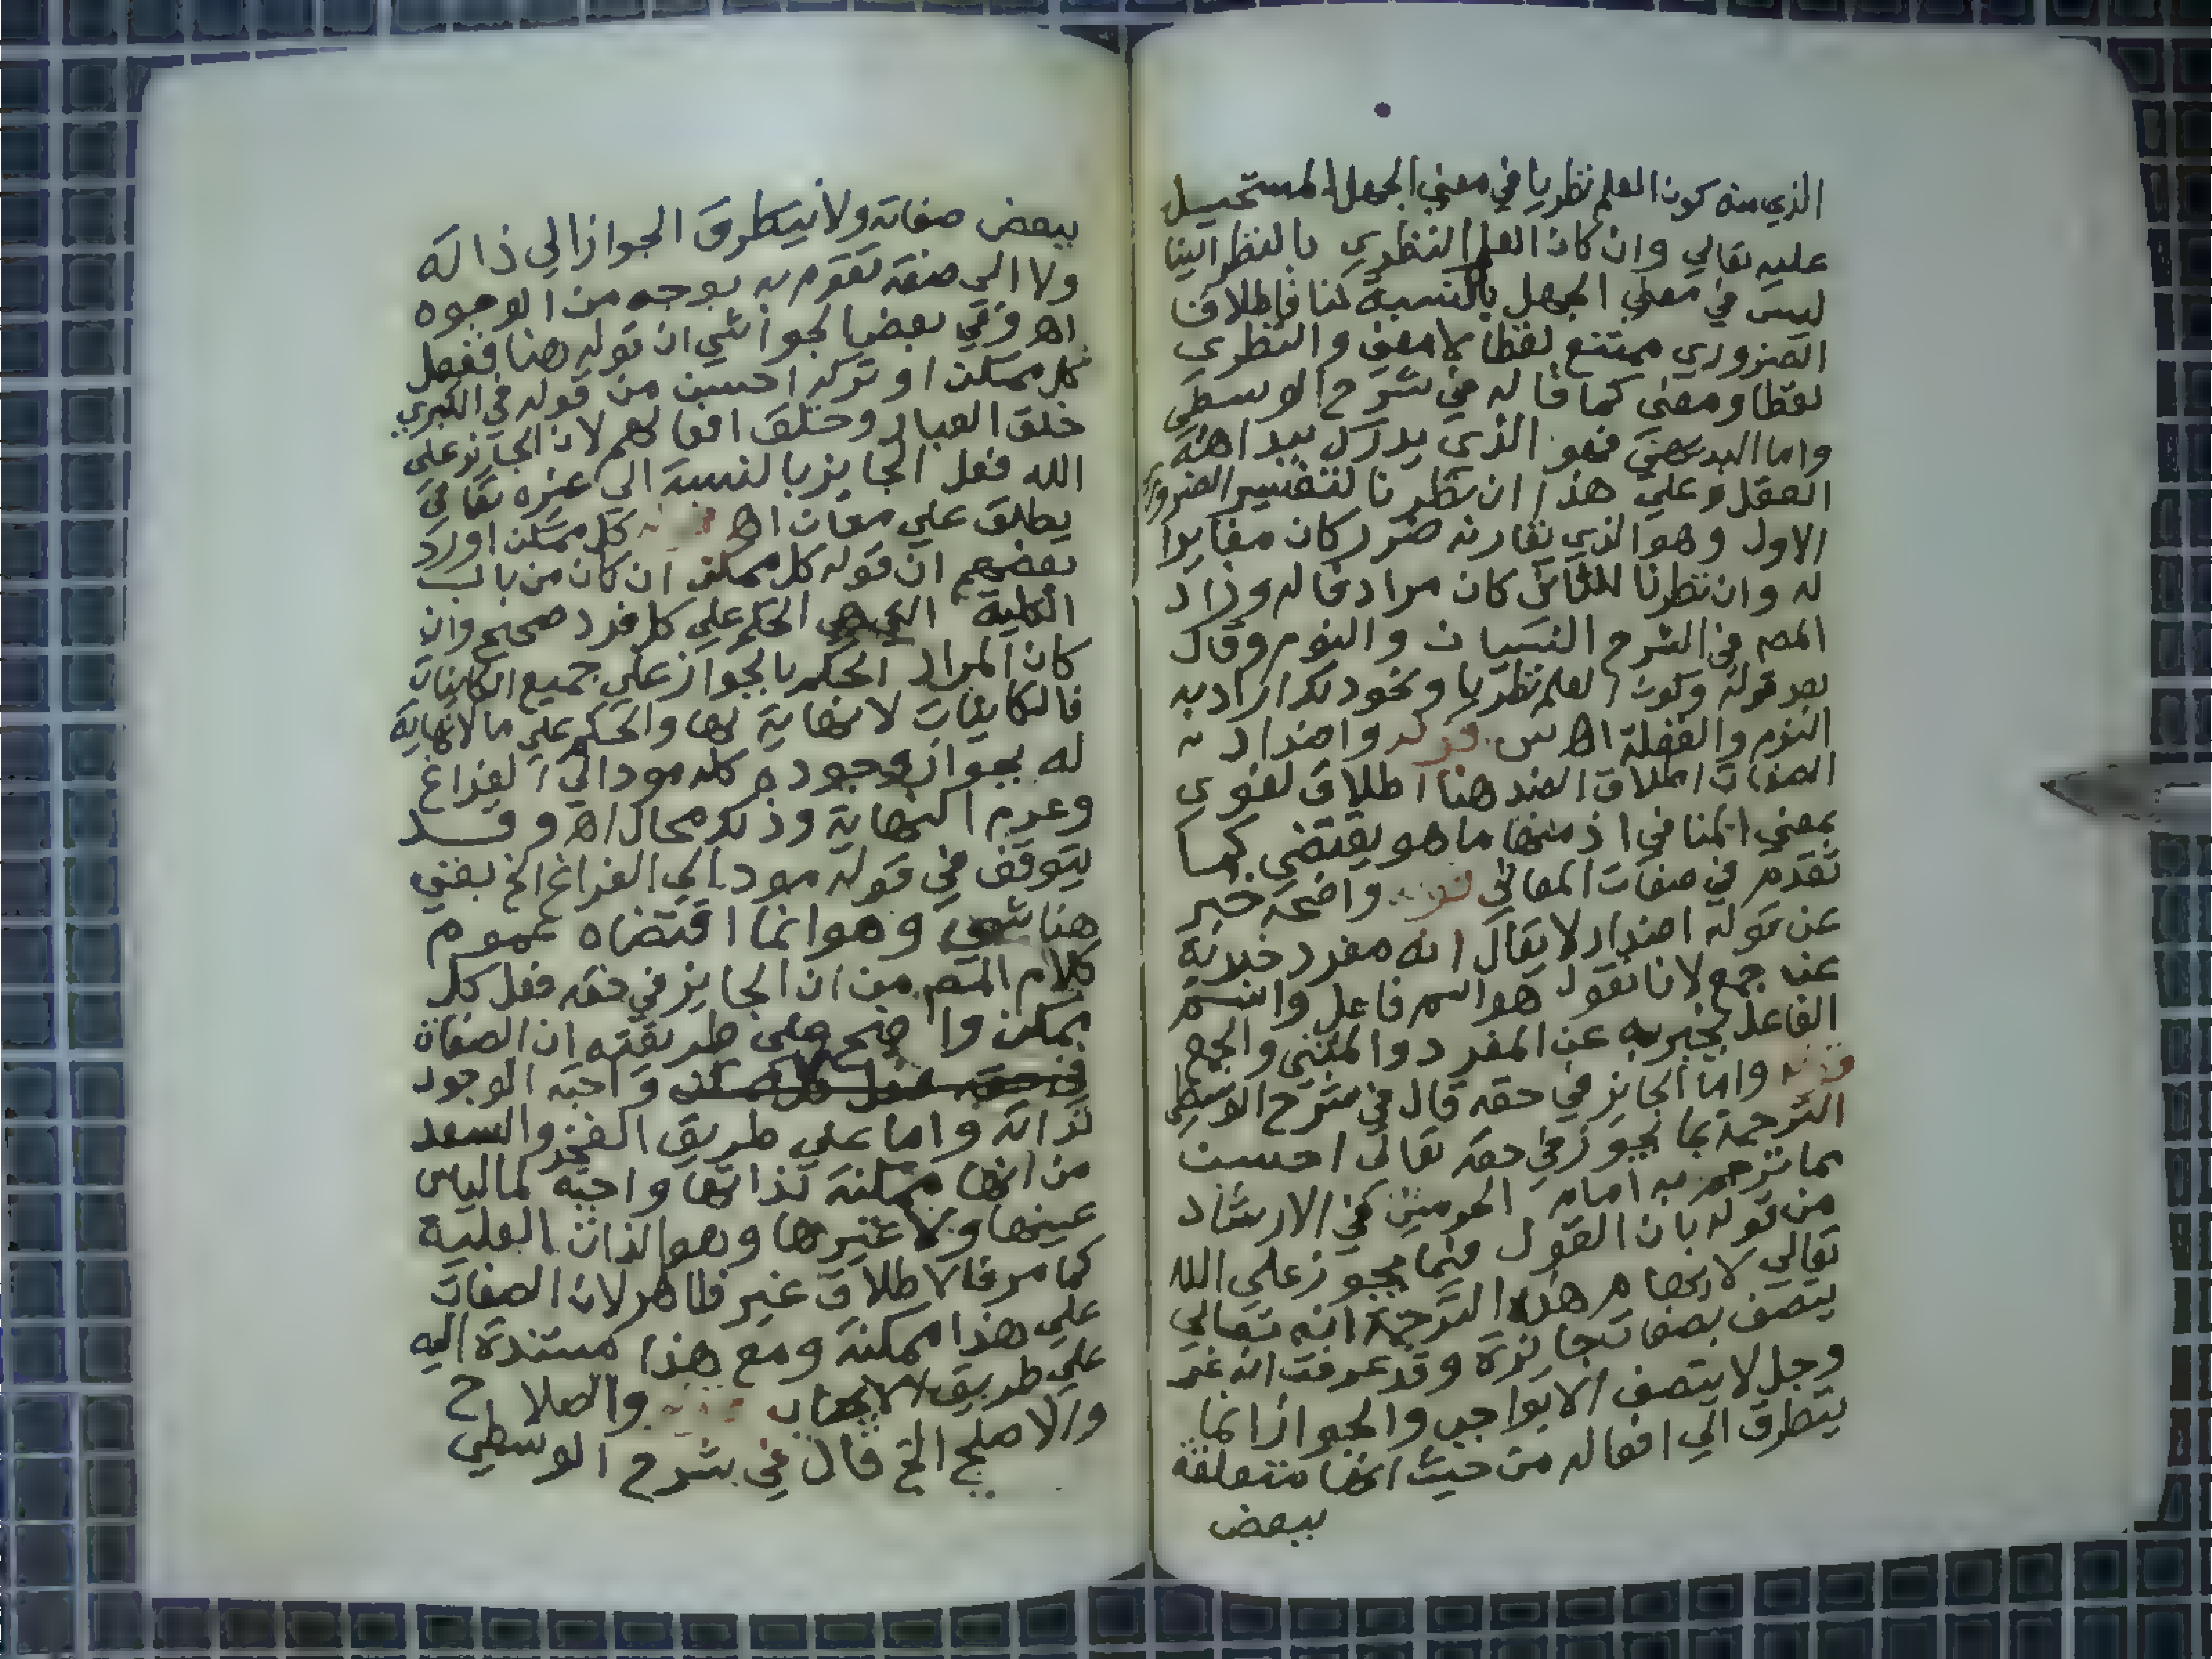 الذي منه كون العلم نظريا في معني الجهل المستحيل
عليه تعالي وان كان العلم النظري بالنظر الينا
ليس في معني الجهل بالنسبة لنا فإطلاق
الضروري ممتنع لفظا لا معني والنظري
لفظا ومعني كما قاله في شرح الوسطي
واما البديهي فهو الذي يدرك ببداهة
العقل وعلي هذا ان نظرنا لتفسير الضروري
الاول وهو الذي تقارنه ضرر كان مغايرا
له وان نظرنا للثاني كان مرادفا له وزاد
المصه في الشرح النسيان والنوم وقال
بعد قوله وكون العلم نظريا ونحو ذلك اراد به
النوم والغفلة اهـ س قوله واضداد
الصفات اطلاق الضد هنا اطلاق لغوي
بمعني المنافي اذ منها ما هو يقتضي كما
تقدم في صفات المعاني قوله واضحة خبر
عن قوله اضداد لا يقال انه مفرد خبر به
عن جمع لانا نقول هو اسم فاعل واسم
الفاعل يخبر به عن المفرد والمثني والجمع
قوله واما الجايز في حقه قال في شرح الوسطي
الترجمة بما يجوز في حقه تعالي احسن
مما ترجم به امام الحرمين في الارشاد
من قوله بان القول فيما يجوز علي الله
تعالي لايهام هذه الترجمة انه تعالي
يتصف بصفات جايزة وقد عرفت انه عز
وجل لا يتصف الا بواجب والجواز انما
يتطرق الي افعاله من حيث انها متعلقة
ببعض
ببعض صفاته ولا يتطرق الجواز الي ذاته
ولا الي صفة تقوم به بوجه من الوجوه
اهـ وفي بعض الحواشي ان قوله هنا ففعل
كل ممكن او تركه احسن من قوله في الكبري
خلق العباد وخلق افعالهم لان الجايز علي
الله فعل الجايز بالنسبة الي غيره تعالي
يطلق علي معان اهـ قوله كل ممكن اورد
بعضهم ان قوله كل ممكن ان كان من باب
الكلية التي هي الحكم علي كل فرد صحيح وان
كان المراد الحكم بالجواز علي جميع الكاينات
فالكاينات لا نهاية لها والحكم علي ما لا نهاية
له بجواز وجوده كله مود الي الفراغ
وعدم النهاية وذلك محال اهـ وقد
يتوقف في قوله مود الي الفراغ الخ بقي
هنا شي وهو انما اقتضاه عموم
كلام المصه من ان الجايز في حقه فعل كل
ممكن واضح علي طريقته ان الصفات
واجبة الوجود
لذاته واما علي طريق الفخر والسعد
من انها ممكنة لذاتها واجبة لما ليس
عينها ولا غيرها وهو الذات العلية
كما مر فالاطلاق غير ظاهر لان الصفات
علي هذا ممكنة ومع هذا مستندة اليه
علي طريق الايجاب قوله والصلاح
والاصلح الخ قال في شرح الوسطي